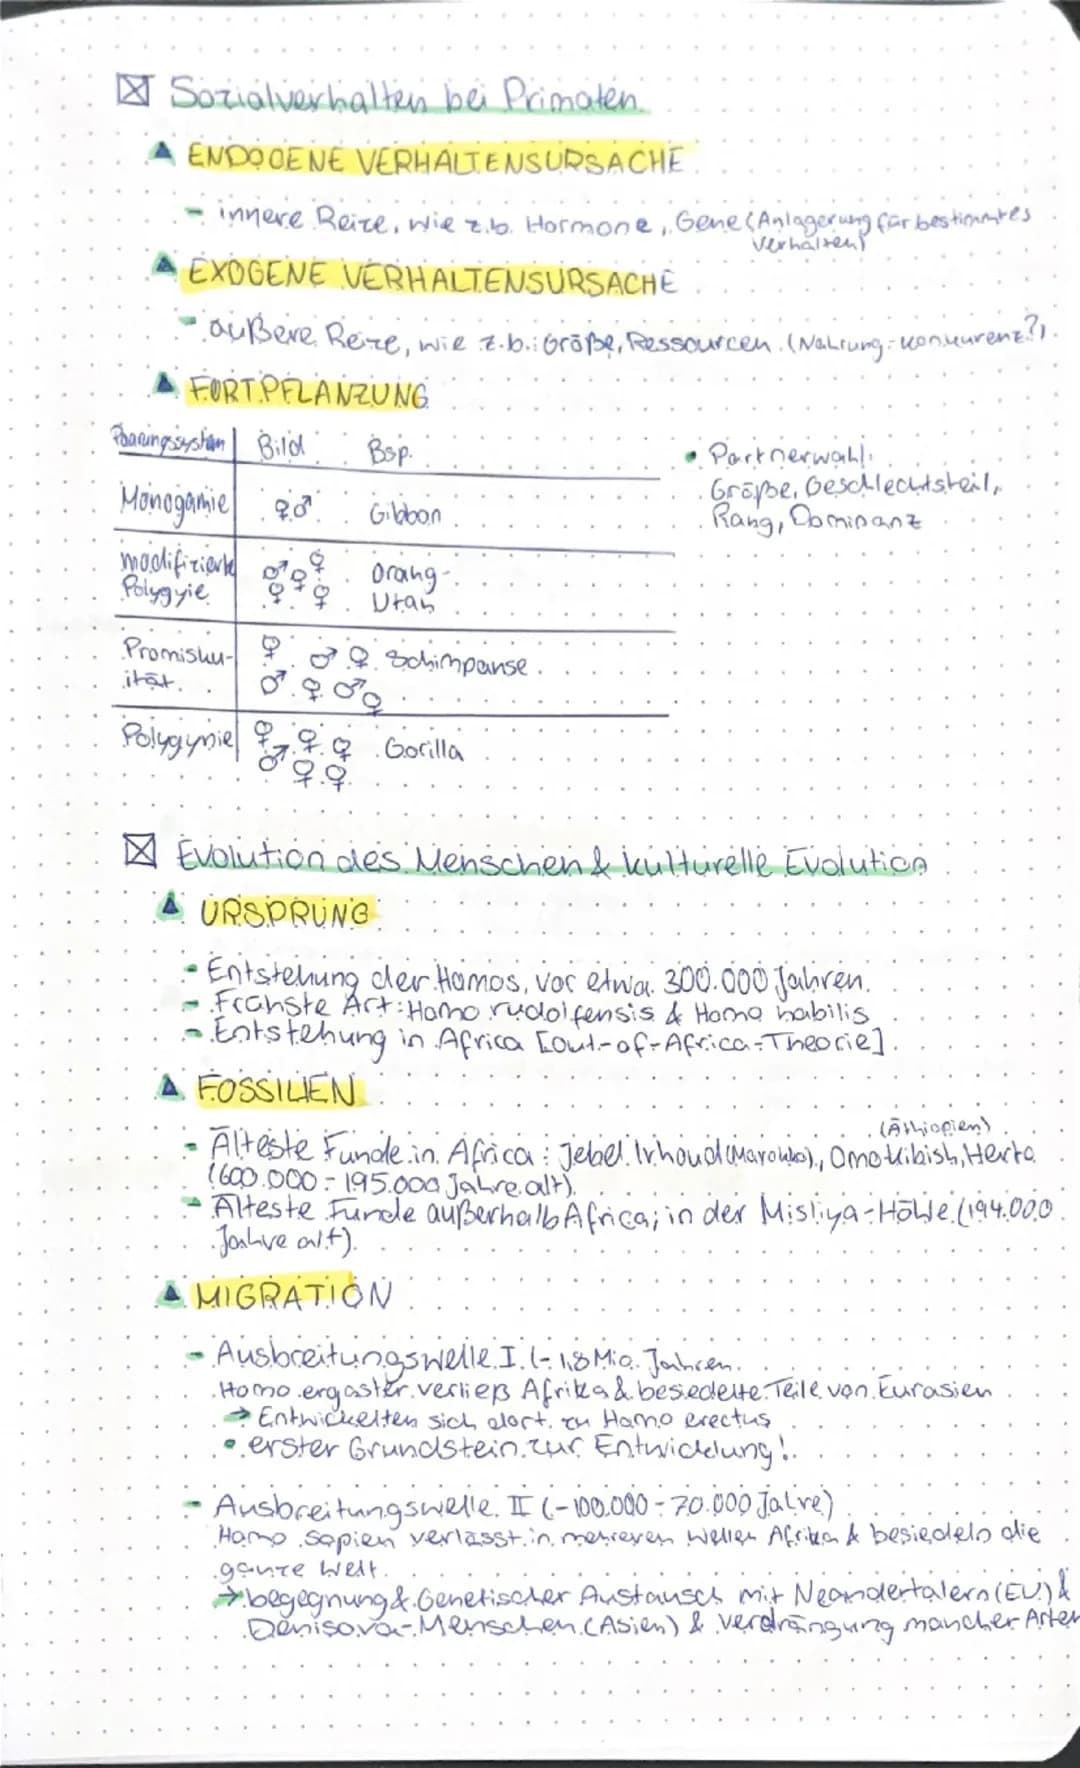 Sozialverhalten bei Primaten
ENDOGENE VERHALTENSURSACHE
- innere Reize, wie z.b. Hormone, Gene (Anlagerung für bestimmtes
Verhalten)
EXOGENE VERHALTENSURSACHE
- äußere Reize, wie z.b.: Größe, Ressourcen (Nahrung-Konkurenz?)
FORTPFLANZUNG
Paarungssystem Bild Bsp.
Monogamie ♀♂ Gibbon
modifizierte ♂♀♀ Orang-
Polygyie ♀♀ Utan
Promisku- ♀ ♂♀ Schimpanse
ität ♂♀♂♀
Polygynie ♀♀♀ Gorilla
♂♀♀
• Partnerwahl:
Größe, Geschlechtsteil,
Rang, Dominanz
Evolution des Menschen & kulturelle Evolution
URSPRUNG
- Entstehung der Homos, vor etwa 300.000 Jahren.
- Frühste Art: Homo rudolfensis & Homo habilis
- Entstehung in Africa [out-of-Africa-Theorie]
FOSSILIEN
(Äthiopien)
- Älteste Funde in Africa: Jebel Irhoud (Marokko), Omo Kibish, Herto
(600.000 - 195.000 Jahre alt)
- Älteste Funde außerhalb Africa; in der Misliya-Höhle (194.000
Jahre alt)
MIGRATION
- Ausbreitungswelle I (- 1,8 Mio. Jahren
Homo ergaster verließ Afrika & besiedelte Teile von Eurasien
→ Entwickelten sich dort zu Homo erectus
• erster Grundstein zur Entwicklung!
- Ausbreitungswelle II (-100.000 - 70.000 Jahre)
Homo sapien verlässt in mehreren Wellen Afrika & besiedeln die
ganze Welt
→ begegnung & Genetischer Austausch mit Neandertalern (EU) &
Denisova-Menschen (Asien) & verdrängung mancher Arten